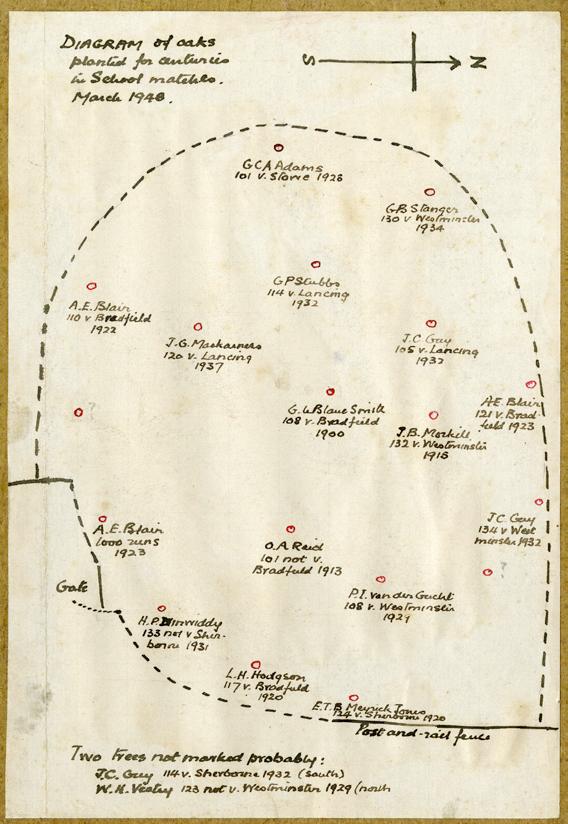 DIAGRAM of oaks
planted for centuries
in School matches.
March 1948.
S
N
G C A Adams
101 v. Stowe 1928
G B Stanger
130 v Westminster
1934
G P Stubbs
114 v. Lancing
1932
A.E. Blair
110 v. Bradfield
1922
J.G. Mackarness
120 v. Lancing
1937
J.C. Guy
105 v. Lancing
1932
A.E. Blair
121 v. Brad-
field 1923
G. LeBlanc Smith
108 v. Bradfield
1900
?
J.B. Morkill
132 v. Westminster
1915
A.E. Blair
1000 runs
1923
J.C. Guy
134 v West
minster 1932
O.A Reid
101 not v.
Bradfield 1913
Gate
P.I. van der Gucht
108 v. Westminster
1929
H.P. Dinwiddy
133 not v Sher-
borne 1931
L.H. Hodgson
117 v. Bradfield
1920
E.T.B. Meyrick Jones
124 v. Sherborne 1920
Post and-rail fence
Two trees not marked probably:
J.C. Guy 114 v. Sherborne 1932 (south)
W.H. Vestey 123 not v. Westminster 1929 (north